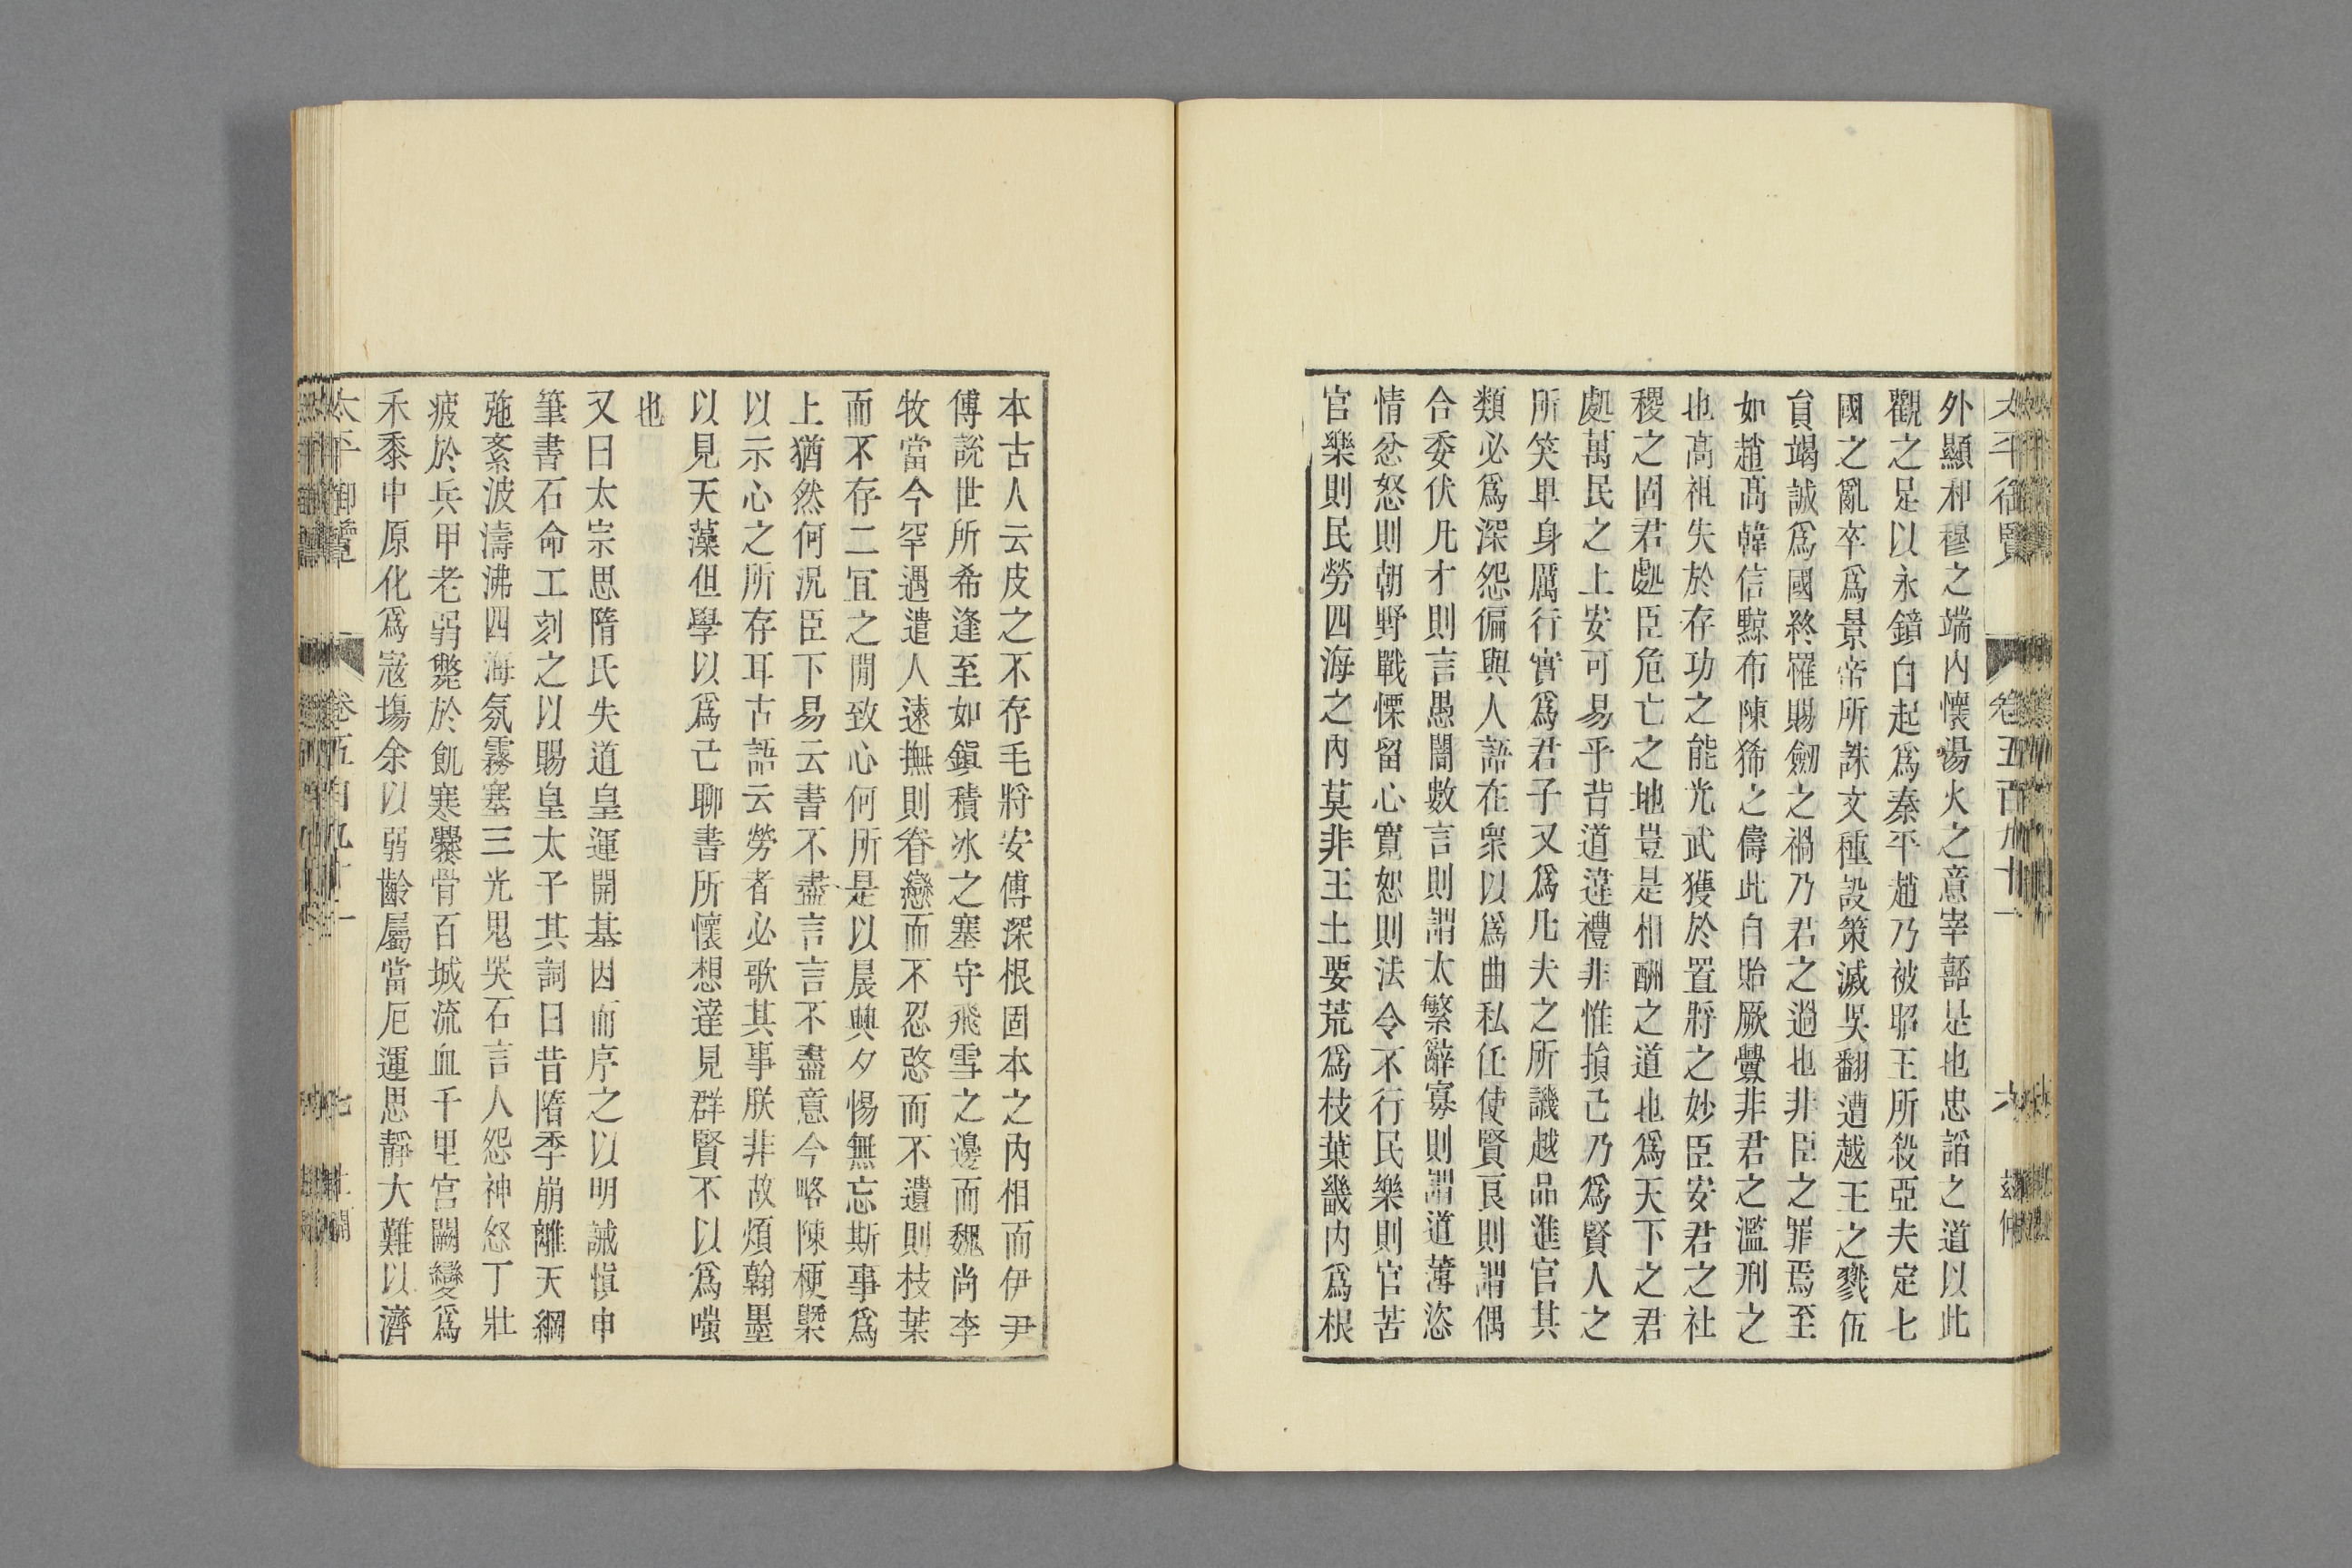 太平御覽 卷五百九十一 六
外顯和穆之端內懷湯火之意宰嚭是也忠諂之道以此
觀之足以永鏡白起爲秦平趙乃被昭王所殺亞夫定七
國之亂卒爲景帝所誅文種設策滅吳翻遭越王之戮伍
貟竭誠爲國終罹賜劒之禍乃君之過也非臣之罪焉至
如趙高韓信黥布陳豨之儔此自貽厥釁非君之濫刑之
也高祖失於存功之能光武獲於置將之妙臣安君之社
稷之固君處臣危亡之地豈是相酬之道也爲天下之君
處萬民之上安可易乎昔道違禮非惟損己乃爲賢人之
所笑卑身厲行實爲君子又爲凡夫之所譏越品進官其
類必爲深怨偏與人語在衆以爲曲私任使賢良則謂偶
合委伏凡才則言愚闇數言則謂太繁辭寡則謂道薄恣
情忿怒則朝野戰慄留心寛恕則法令不行民樂則官苦
官樂則民勞四海之內莫非王土要荒爲枝葉畿內爲根
本古人云皮之不存毛將安傅深根固本之內相而伊尹
傅説世所希逢至如鎭積氷之塞守飛雪之邊而魏尚李
牧當今罕遇遣人遠撫則眷戀而不忍慜而不遣則枝葉
而不存二冝之閒致心何所是以晨興夕惕無忘斯事爲
上猶然何況臣下易云書不盡言言不盡意今略陳梗槩
以示心之所存耳古語云勞者必歌其事朕非故煩翰墨
以見天藻但學以爲己聊書所懷想達見群賢不以爲嗤
也
又曰太宗思隋氏失道皇運開基因而序之以明誡愼申
筆書石命工刻之以賜皇太子其詞曰昔隋季崩離天綱
弛紊波濤沸四海氛霧塞三光鬼哭石言人怨神怒丁壯
疲於兵甲老弱斃於飢寒爨骨百城流血千里宫闕變爲
禾黍中原化爲寇塲余以弱齡屬當厄運思靜大難以濟
太平御覽 卷五百九十一 七